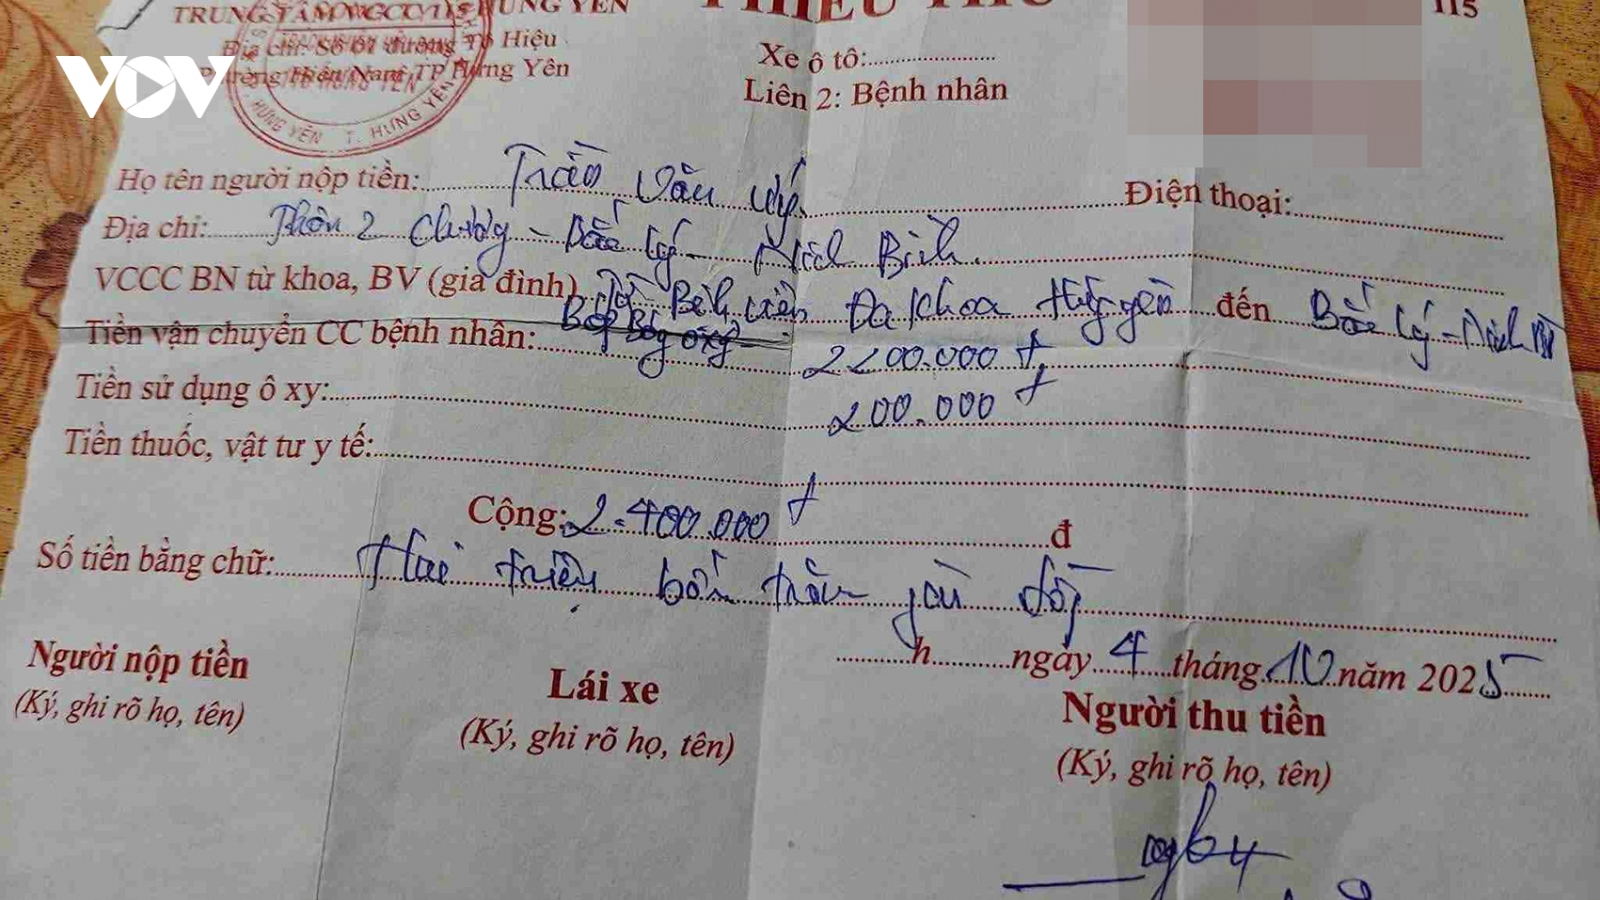 TRUNG TÂM VCCC 115 HƯNG YÊN
PHIẾU THU
115
Địa chỉ: Số 01 đường Tô Hiệu
Phường Hiến Nam, TP Hưng Yên
VOV
HƯNG YÊN T. HƯNG YÊN
Xe ô tô:
Liên 2: Bệnh nhân
Họ tên người nộp tiền: Trần Văn
Điện thoại:
Địa chỉ: Thôn 2 Chương - Bắc Lý - Ninh Bình.
VCCC BN từ khoa, BV (gia đình) Từ Bệnh viện Đa khoa Hưng yên đến Bắc Lý - Ninh
Tiền vận chuyển CC bệnh nhân: Bóp Bóng ôxy 2200.000 đ
Tiền sử dụng ô xy: 200.000 đ
Tiền thuốc, vật tư y tế:
Cộng: 2.400.000 đ đ
Số tiền bằng chữ: Hai triệu bốn trăm đồng
h ngày 4 tháng 10 năm 2025
Người nộp tiền
(Ký, ghi rõ họ, tên)
Lái xe
(Ký, ghi rõ họ, tên)
Người thu tiền
(Ký, ghi rõ họ, tên)